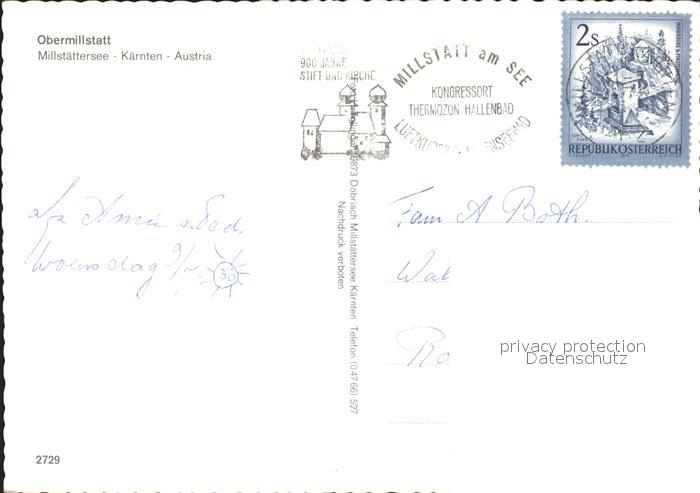 Obermillstatt
Millstättersee - Kärnten - Austria
900 JAHRE
STIFT UND KIRCHE
MILLSTATT am SEE
KONGRESSORT
THERMOZON HALLENBAD
2s
REPUBLIK ÖSTERREICH
9873 Döbriach Millstättersee Kärnten Telefon (0 47 66) 527
Nachdruck verboten
woensdag 9/7 30
Fam A Both.
Wal
Ro
privacy protection
Datenschutz
2729